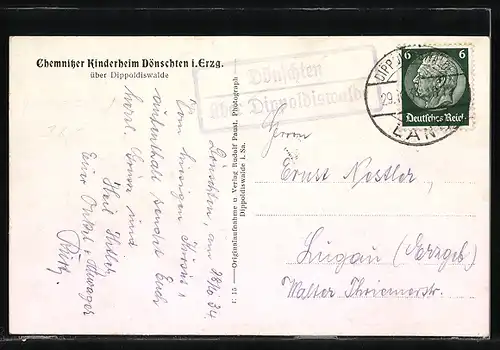 Chemnitzer Kinderheim Dönschten i. Erzg.
über Dippoldiswalde
Dönschten
über Dippoldiswalde
29.
LAND
6 6
Deutsches Reich
Dönschten, am 28/10 34
Vom hiesigen Kursus,
aufenthalt sendet Euch
herzl. Grüsse und
Heil Hitler
Euer Onkel u. Schwager
F. 15 — Originalaufnahme u. Verlag Rudolf Paust, Photograph
Dippoldiswalde i. Sa.
Herrn
Ernst Nestler,
Lugau (Erzgeb)
Walter Thriemerstr.